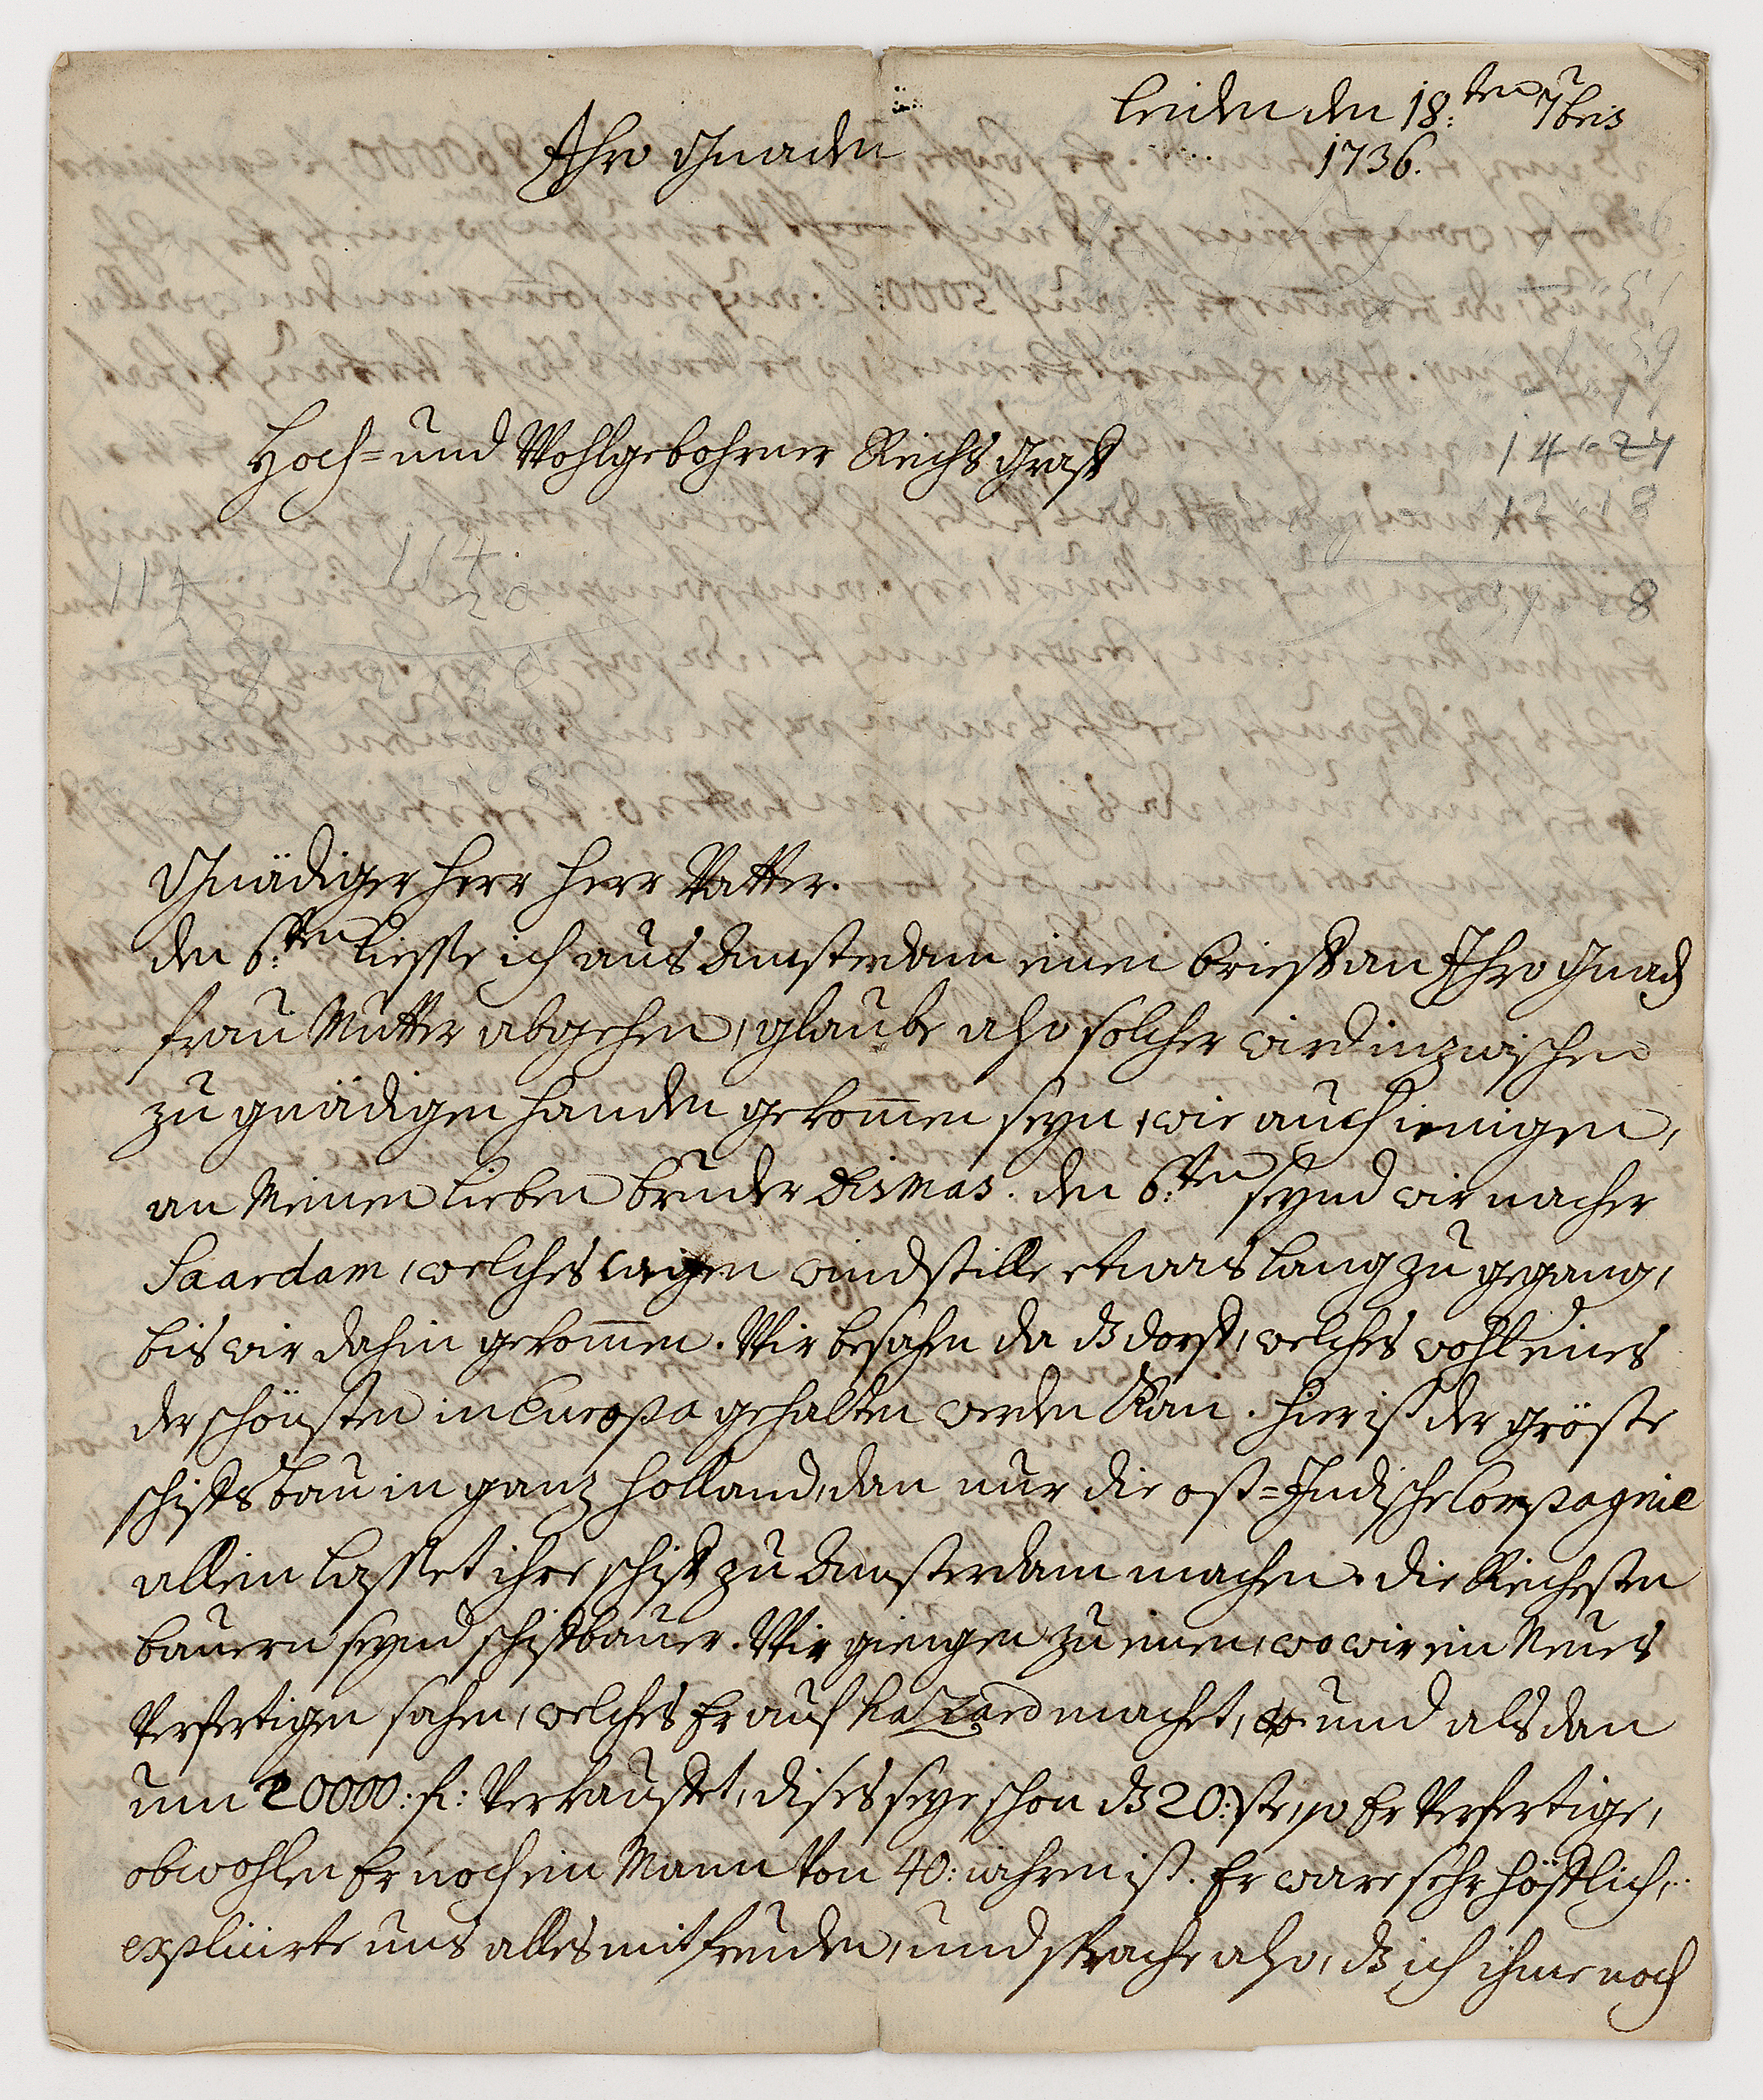 Leiden den 18:ten 7bris
1736.
Ihro Gnaden
Hoch= und Wohlgebohrner Reichs Graff
14-24
17-18
8
114
114
20
Gnädiger Herr Herr Vatter.
den 6:ten liesse ich aus Amsterdam einen brieff an Ihro Gnad
frau Mutter abgehen, glaube also solcher wird inzwischen
zu gnädigen handen gekom̅en seyn, wie auch ienigen,
an Meinen lieben bruder Dismas. den 6:ten seynd wir nacher
Saardam, welches wegen windstille etwas lang zu gegang,
bis wir dahin gekom̅en. Wir besahen da dz dorff, welches wohl eines
der schönsten in Europa gehalten werden kan. hier ist der gröste
schiffs bau in ganz Holland, dan nur die ost=Indische Compagnie
allein lasset ihre schiff zu Amsterdam machen. die Reichesten
bauern seynd schiffbauer. Wir giengen zu einen, wo wir ein Neues
Verfertigen sahen, welches Er auf hazard machet, und als dan
um 20000: fl: Verkauffet, dises seye schon dz 20:ste, so Er Verfertige,
obwohlen Er noch ein Mann Von 40: iahren ist. Er ware sehr höfflich,
explicirte uns alles mit freuden, und sprache also, dz ich ihme noch